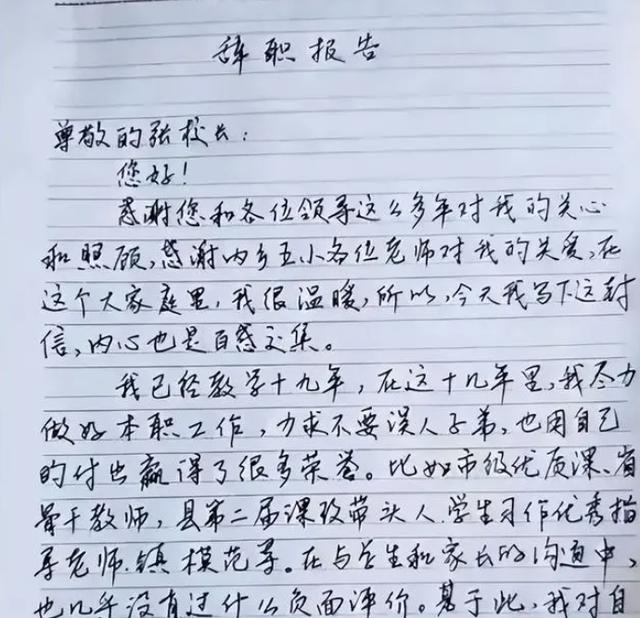 辞职报告
尊敬的张校长：
您好！
感谢您和各位领导这么多年对我的关心
和照顾，感谢内乡五小各位老师对我的关爱，在
这个大家庭里，我很温暖，所以，今天我写下这封
信，内心也是百感交集。
我已经教学十九年，在这十几年里，我尽力
做好本职工作，力求不要误人子弟，也因自己
的付出赢得了很多荣誉。比如市级优质课、省
骨干教师，县第二届课改带头人，学生习作优秀指
导老师，镇模范等。在与学生和家长的沟通中，
也几乎没有过什么负面评价。基于此，我对自